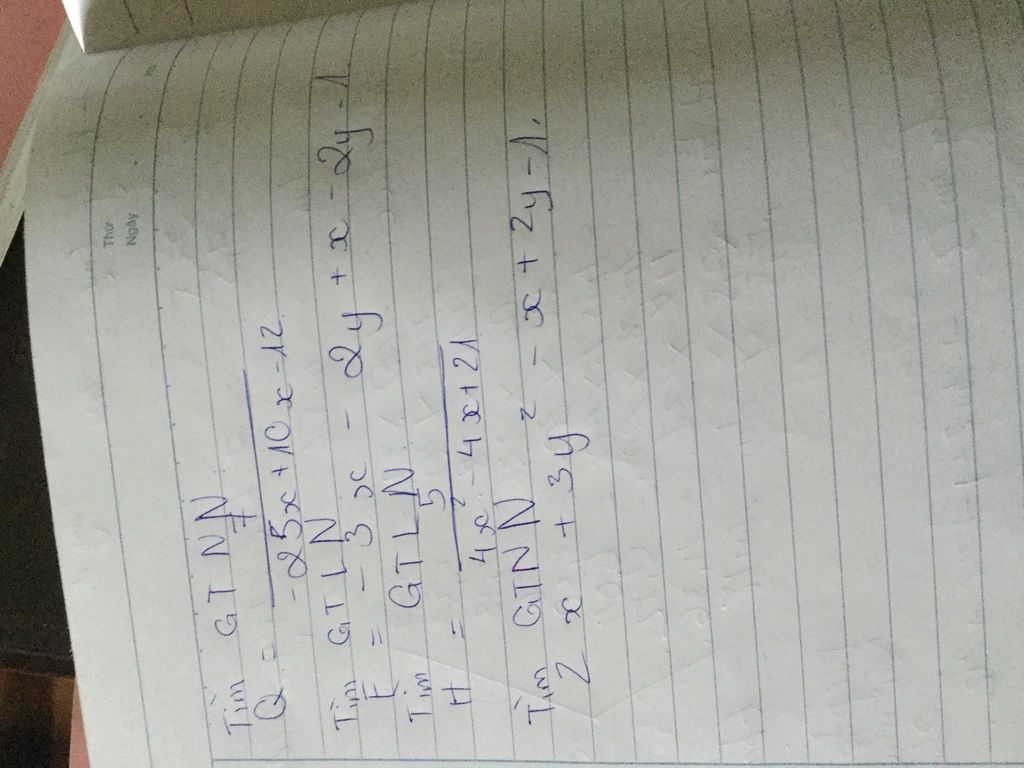 Thứ
Ngày
Tìm GTNN
Q = 7 / -25x + 10x - 12
Tìm GTLN
E = -3x - 2y + x - 2y - 1
Tìm GTLN
H = 5 / 4x² - 4x + 21
Tìm GTNN
2x + 3y² - x + 2y - 1.